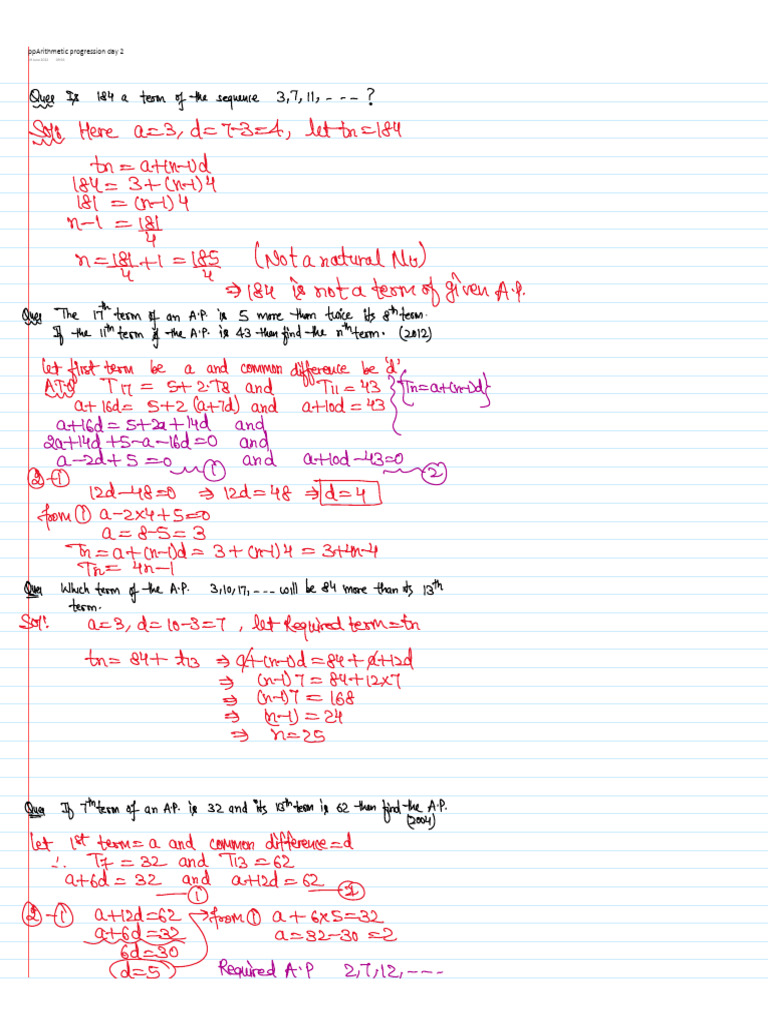 ppArithmetic progression day 2
Ques Is 184 a term of the sequence 3,7,11, ---- ?
Sol: Here a=3, d=7-3=4, let tn=184
tn = a+(n-1)d
184 = 3+(n-1)4
181 = (n-1)4
n-1 = 181/4
n = 181/4 + 1 = 185/4 (Not a natural No)
⇒ 184 is not a term of given A.P.
Ques The 17th term of an A.P. is 5 more than twice its 8th term.
If the 11th term of the A.P. is 43 then find the nth term. (2012)
Let first term be a and common difference be 'd'
ATQ T17 = 5+2·T8 and T11 = 43 {Tn=a+(n-1)d}
a+16d = 5+2(a+7d) and a+10d = 43
a+16d = 5+2a+14d and
2a+14d+5-a-16d=0 and
a-2d+5=0 ① and a+10d-43=0 ②
②-①
12d-48=0 ⇒ 12d=48 ⇒ d=4
from ① a-2×4+5=0
a = 8-5 = 3
Tn = a+(n-1)d = 3+(n-1)4 = 3+4n-4
Tn = 4n-1
Ques Which term of the A.P. 3,10,17, ---- will be 84 more than its 13th
term.
Sol: a=3, d=10-3=7, let Required term=tn
tn = 84+ t13 ⇒ a+(n-1)d = 84+a+12d
⇒ (n-1)7 = 84+12×7
⇒ (n-1)7 = 168
⇒ (n-1) = 24
⇒ n=25
Ques If 7th term of an A.P. is 32 and its 13th term is 62 then find the A.P.
(2004)
Let 1st term=a and common difference=d
∴ T7 = 32 and T13 = 62
a+6d = 32 ① and a+12d = 62 ②
②-① a+12d=62 from ① a+6×5=32
a+6d=32 a=32-30=2
6d=30
d=5 Required A.P 2,7,12, ----